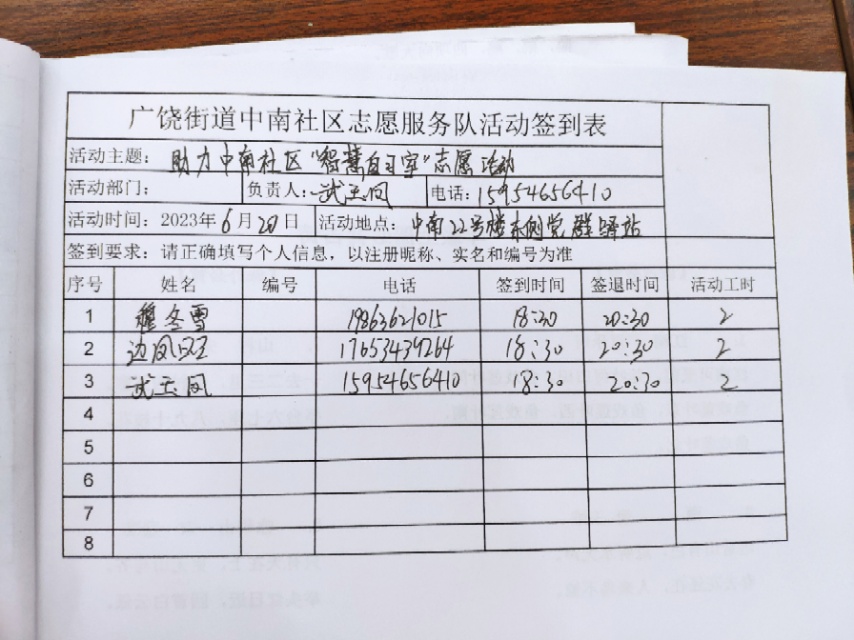 广饶街道中南社区志愿服务队活动签到表
活动主题：助力中南社区“智慧自习室”志愿活动
活动部门： 负责人：武玉凤 电话：15954656410
活动时间：2023年6月20日 活动地点：中南22号楼东侧党群驿站
签到要求：请正确填写个人信息，以注册昵称、实名和编号为准
序号 姓名 编号 电话 签到时间 签退时间 活动工时
1 穆冬雪 19863621015 18:30 20:30 2
2 边凤 17653439264 18:30 20:30 2
3 武玉凤 15954656410 18:30 20:30 2
4
5
6
7
8